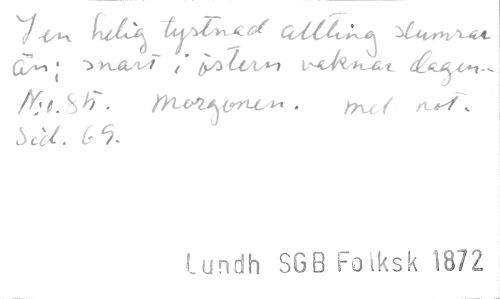 I en helig tystnad allting slumrar
än; snart i östern vaknar dagen.
N:o. 85. Morgonen. med not.
Sid. 69.
Lundh SGB Folksk 1872